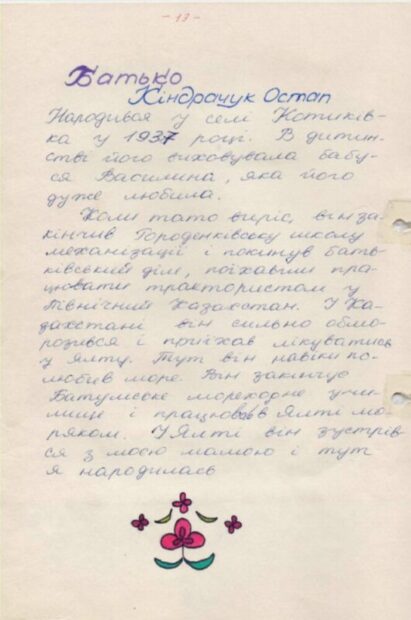 - 13 -
Батько
Кіндрачук Остап
Народився у селі Котиків-
ка у 1937 році. В дитин-
стві його виховувала бабу-
ся Василина, яка його
дуже любила.
Коли тато виріс, він за-
кінчив Городенківську школу
механізації і покинув бать-
ківський дім, поїхавши пра-
цювати трактористом у
Північний Казахстан. У Ка-
захстані він сильно обмо-
розився і приїхав лікуватись
у Ялту. Тут він навіки по-
любив море. Він закінчує
Батумське мореходне учи-
лище і працював в Ялті мо-
ряком. У Ялті він зустрів-
ся з моєю мамою і тут
я народилась